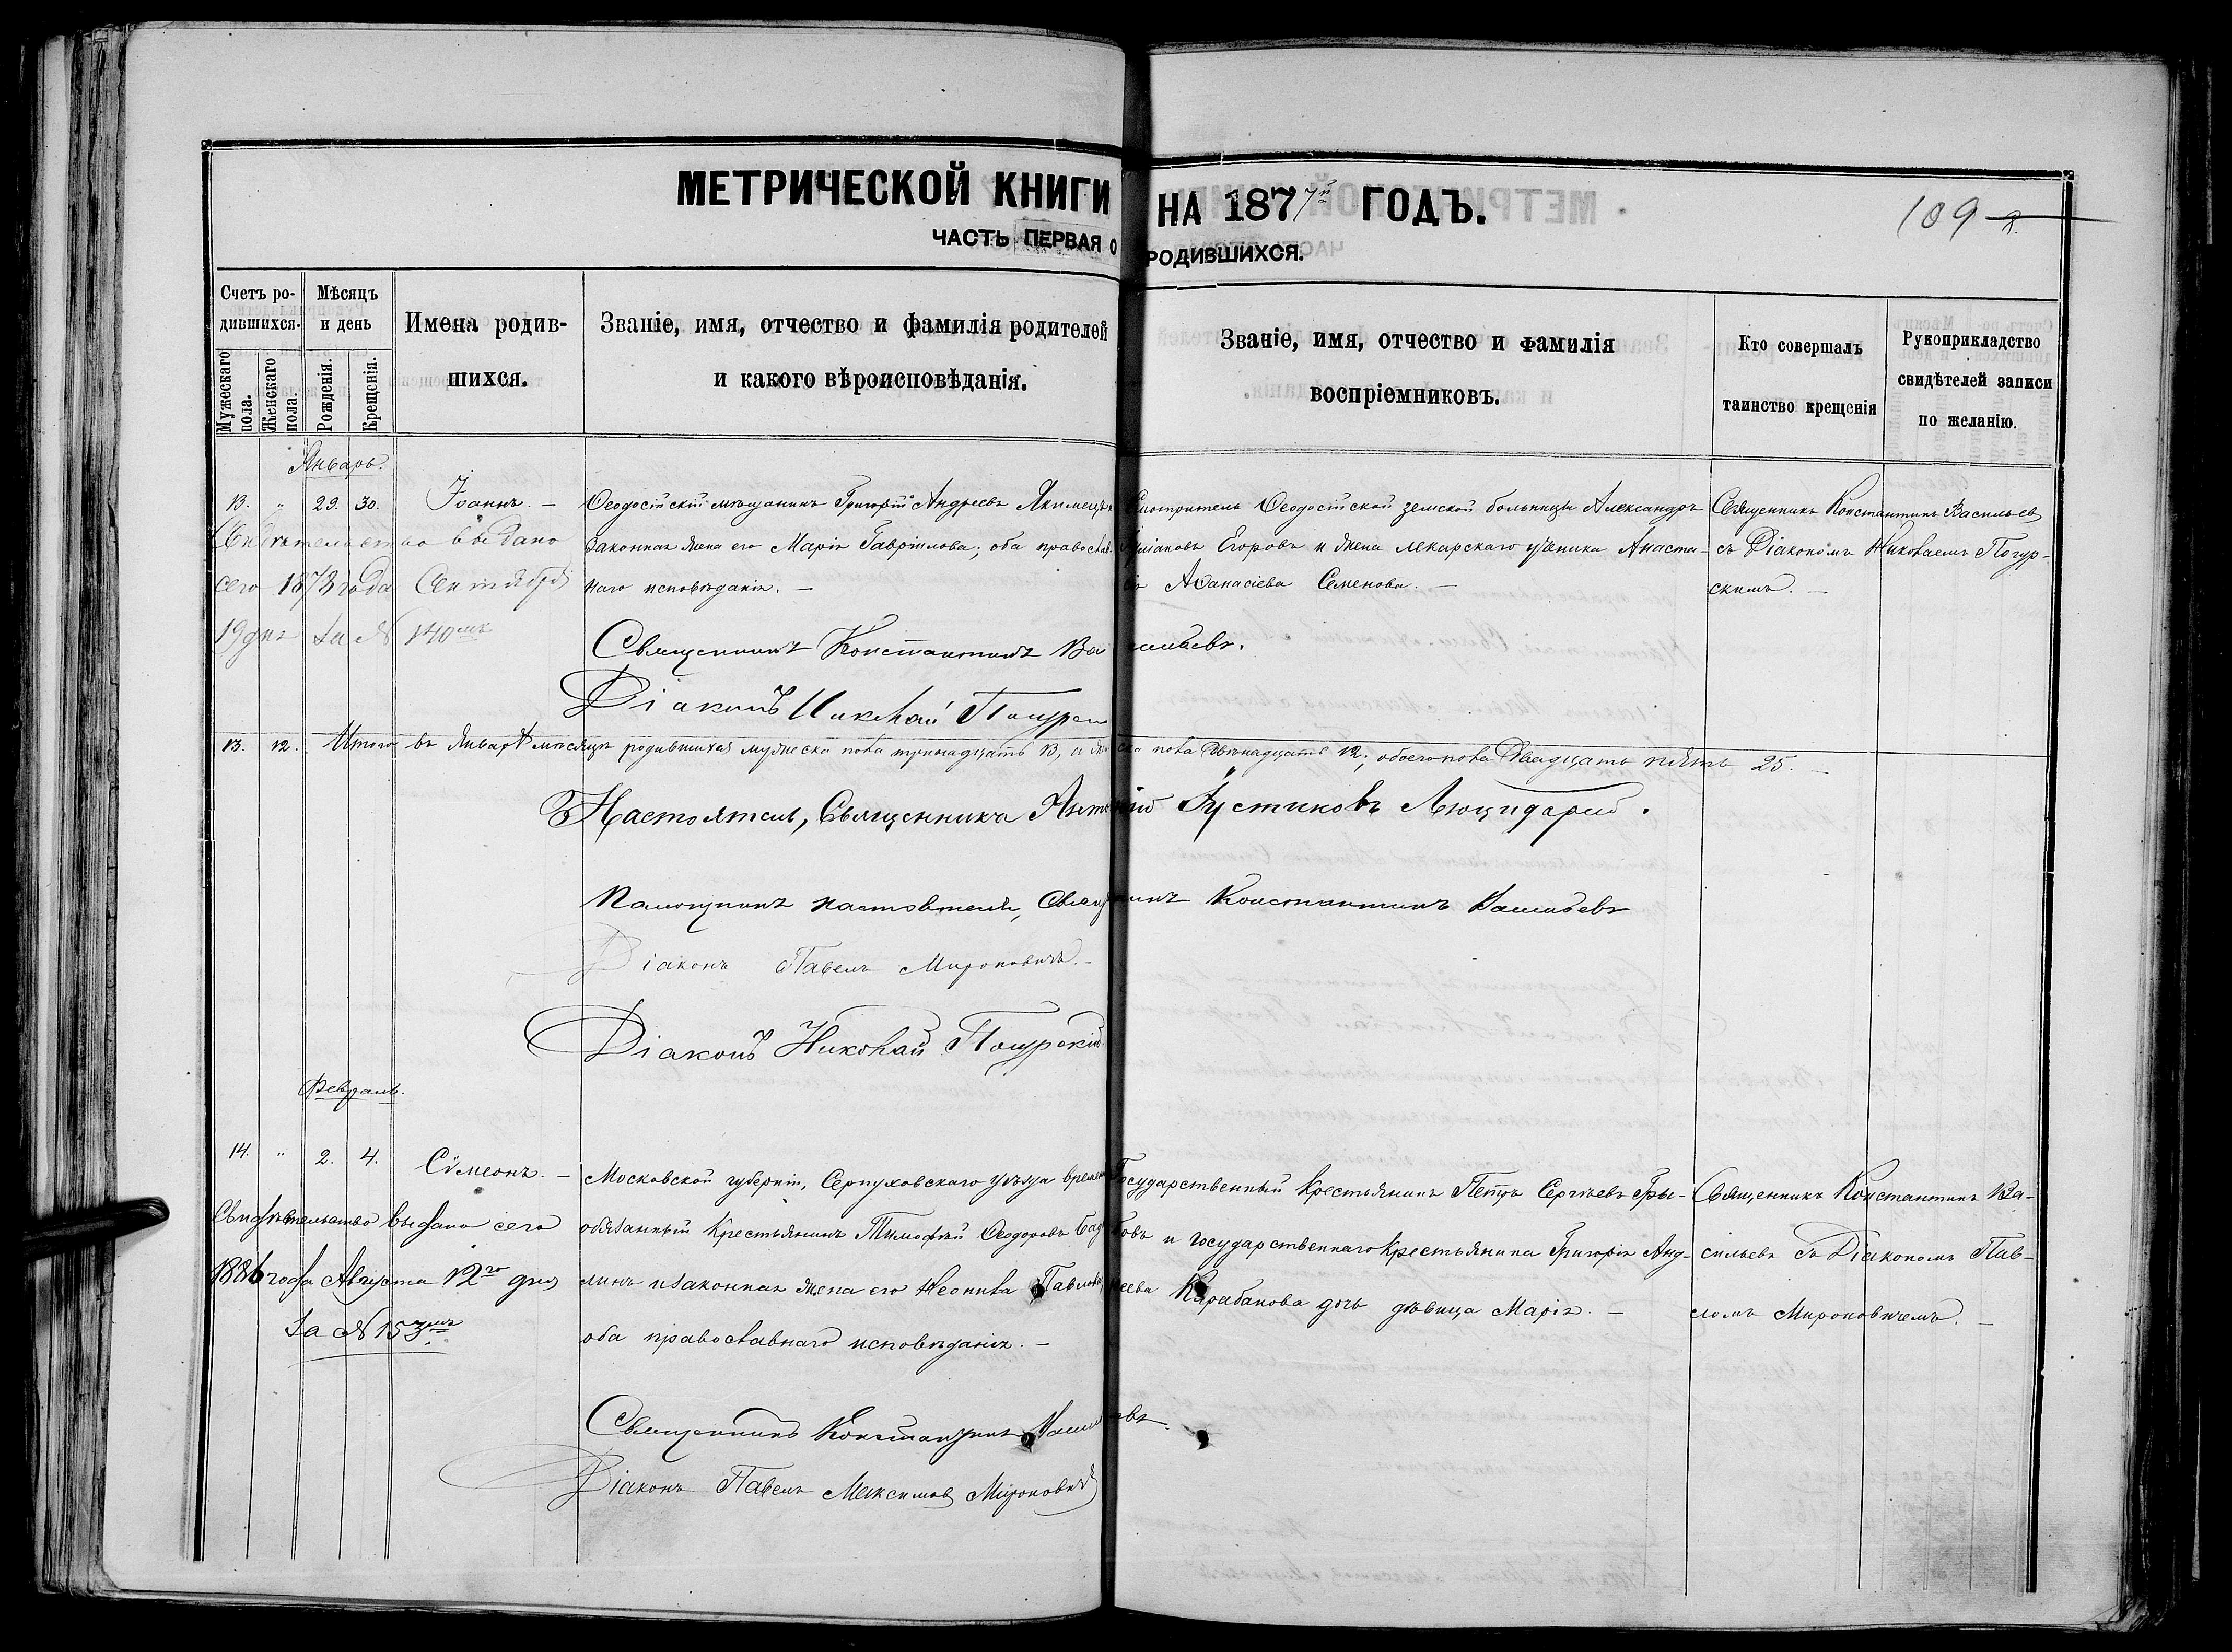 МЕТРИЧЕСКОЙ КНИГИ НА 1877й ГОДЪ.
109
ЧАСТЬ ПЕРВАЯ О РОДИВШИХСЯ.
Счетъ родившихся.
Мужескаго пола.
Женскаго пола.
Мѣсяцъ и день
Рожденія.
Крещенія.
Имена родившихся.
Званіе, имя, отчество и фамилія родителей
и какого вѣроисповѣданія.
Званіе, имя, отчество и фамилія
воспріемниковъ.
Кто совершалъ
таинство крещенія
Рукоприкладство
свидѣтелей записи
по желанію.
Январь.
13. " 29. 30. Іоаннъ. –
Ѳеодосійскій мѣщанинъ Григорій Андреевъ
законная жена его Марія Гавріилова; оба православ-
наго исповѣданія. –
Смотритель Ѳеодосійской земской больницы Александръ
Егоровъ и жена лекарскаго ученика Анаста-
Аѳанасіева Семенова. –
Священникъ Константинъ Васильев
съ Діакономъ Николаемъ Погур-
скимъ. –
Свидѣтельство выдано
сего 1878 года Сентября
19 дня за № 140мъ
Священникъ Константинъ Васильевъ.
Діаконъ Николай
13. 12. Итого въ Январѣ мѣсяцѣ родившихся мужеска пола тринадцать 13, а женска пола двѣнадцать 12; обоего пола двадцать пять 25. –
Настоятель, Священникъ Антоній Іустиновъ Люцидарій.
Помощникъ настоятеля, Священникъ Константинъ Васильевъ
Діаконъ Павелъ Мироновичъ. –
Діаконъ Николай Погурскій
Февраль.
14. " 2. 4. Сѵмеонъ. –
Московской губерніи, Серпуховскаго уѣзда времен
обязанный Крестьянинъ Тимоѳей Ѳеодоровъ
линъ и законная жена его Неонила Павлова,
оба православнаго исповѣданія. –
Государственный Крестьянинъ Петръ Сергѣевъ Гры-
ковъ и государственнаго Крестьянина Григорія Анд-
реева Карабанова дочь дѣвица Марія. –
Священникъ Константинъ Ва-
сильевъ съ Діакономъ Пав-
ломъ Мироновичемъ. –
Свидѣтельство выдано сего
1886 года Августа 12го дня
За № 153мъ
Священникъ Константинъ Васильевъ
Діаконъ Павелъ Максимов Мироновичъ